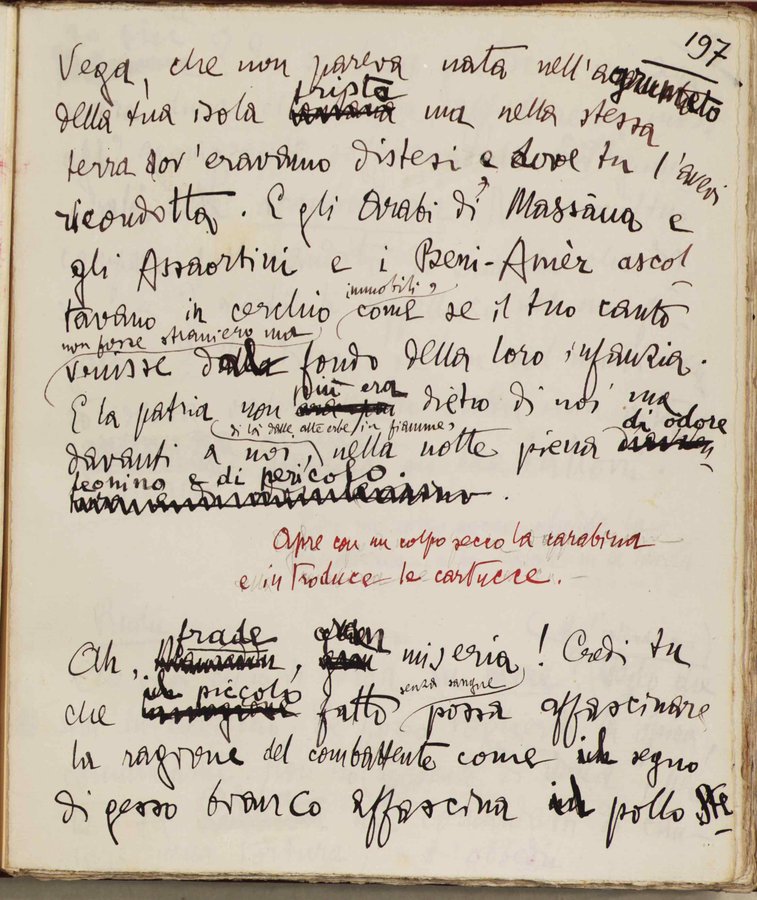 197
Vega, che non pareva nata nell'aggrumato
triste
della tua isola ma nella stessa
terra dov'eravamo distesi e dove tu l'avevi
ricondotta. E gli Arabi di Massàua e
gli Assaortini e i Beni-Amèr ascol
immobili,
tavano in cerchio come se il tuo canto
non fosse straniero ma
venisse dal fondo della loro infanzia.
più era
E la patria non dietro di noi ma
di là dalle alte erbe in fiamme,
di odore
davanti a noi, nella notte piena
leonino e di pericolo.
Apre con un colpo secco la carabina
e introduce le cartucce.
frade gran
Ah, , miseria! Credi tu
il piccolo
senza sangue
che fatto possa affascinare
la ragione del combattente come il segno
di gesso bianco affascina il pollo ste